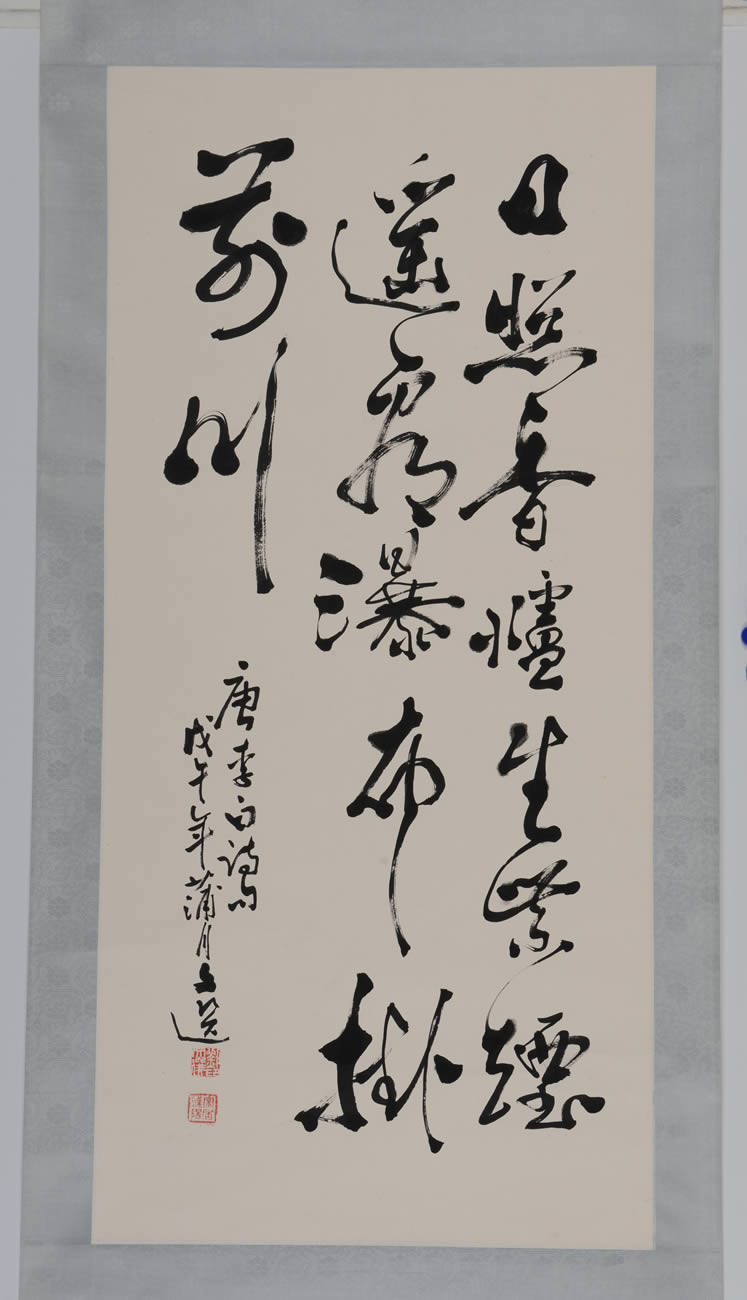 日照香爐生紫煙
遙看瀑布掛
前川
唐李白詩
戊午年蒲月文選